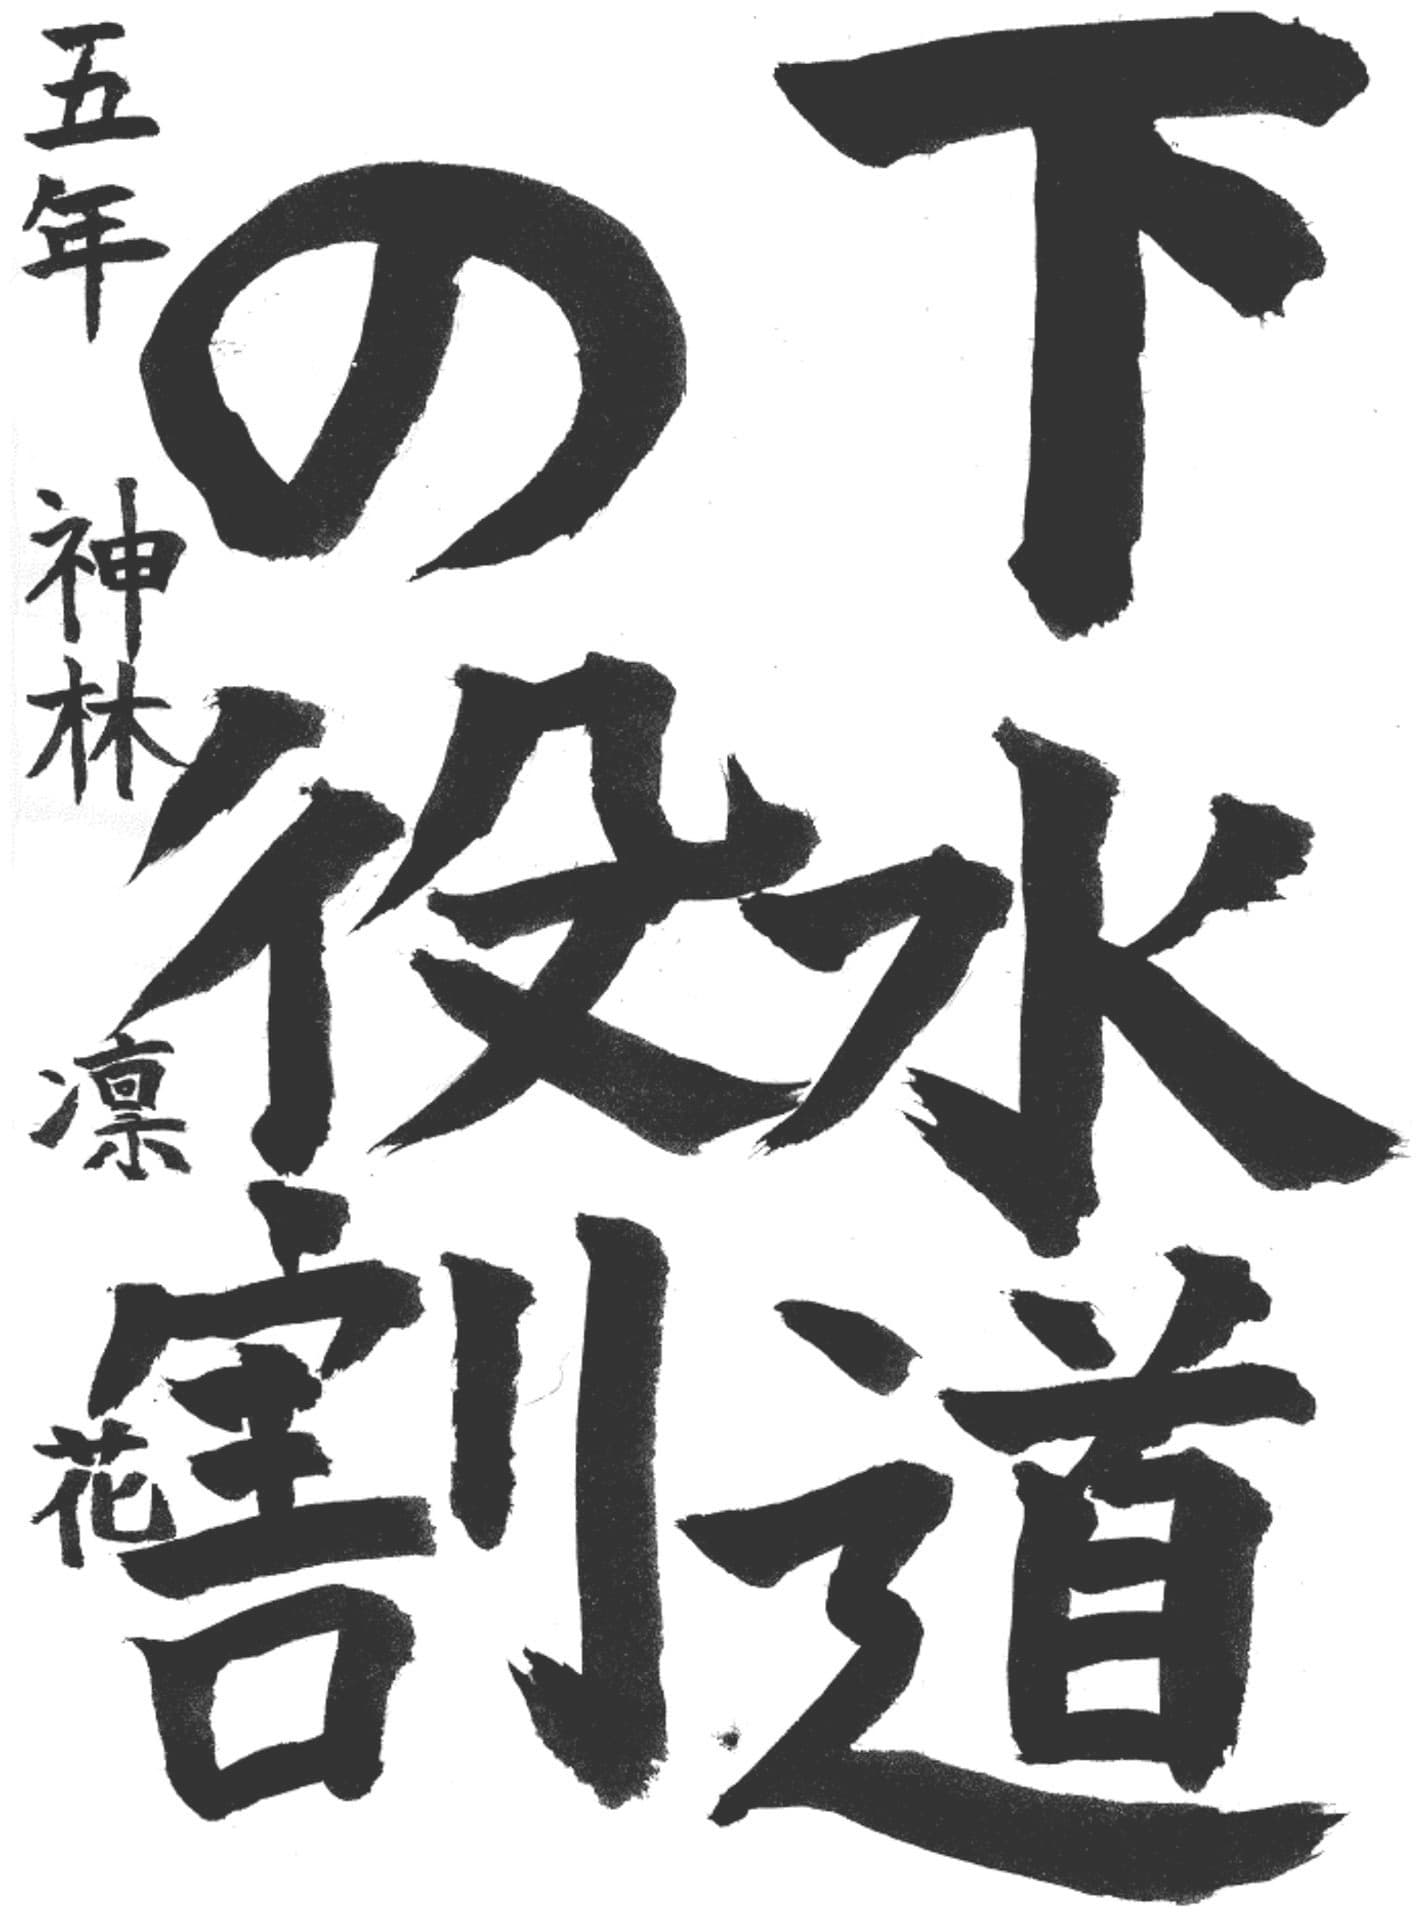 下水道
の役割
五年 神林 凛花